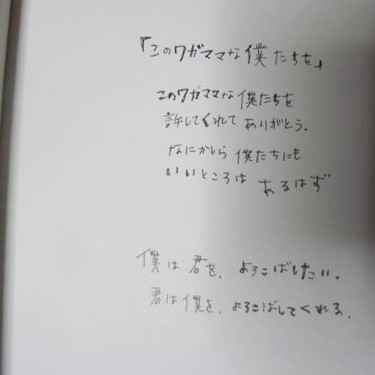 『このワガママな僕たちを』
このワガママな僕たちを
許してくれて ありがとう.
なにかしら 僕たちにも
いいところは あるはず
僕は 君を、よろこばしたい.
君は僕を、よろこばしてくれる.